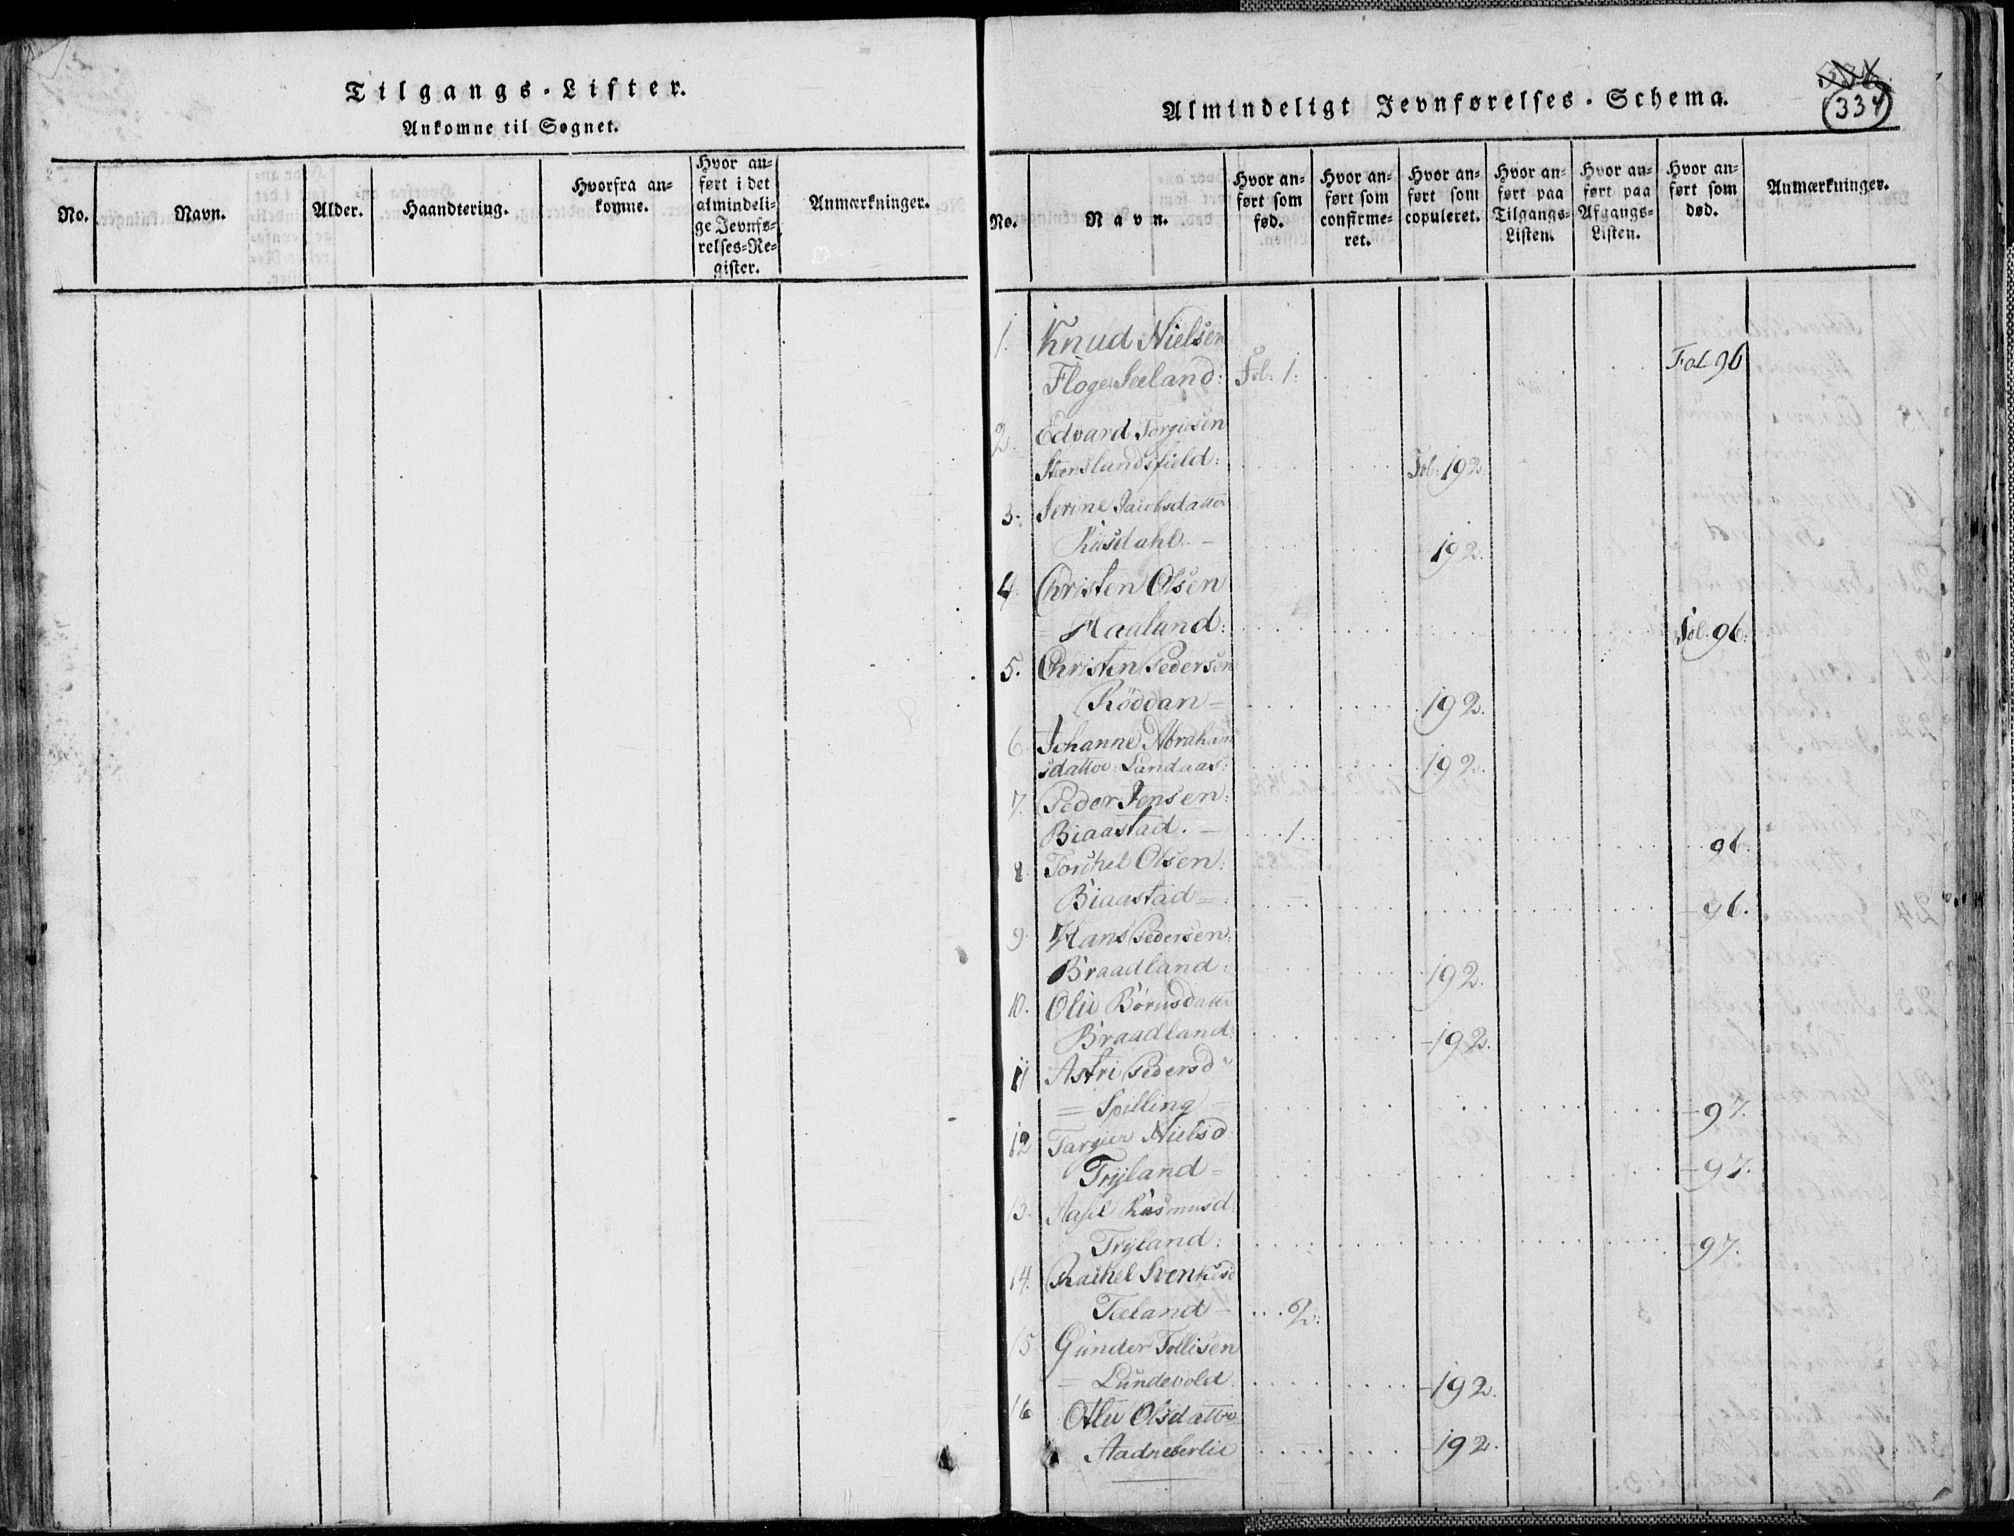 Tilgangs-Lister.
Ankomne til Sognet.
No.
Navn.
Alder.
Haandtering.
Hvorfra an-
komne.
Hvor an-
ført i det
almindeli-
ge Jevnfø-
relses-Re-
gister.
Anmærkninger.
334
Almindeligt Jevnførelses-Schema.
No.
Navn.
Hvor an-
ført som
fød.
Hvor an-
ført som
confirme-
ret.
Hvor an-
ført som
copuleret.
Hvor an-
ført paa
Tilgangs-
Listen.
Hvor an-
ført paa
Afgangs-
Listen.
Hvor an-
ført som
død.
Anmærkninger.
1. Knud Nielsen
Floge Seeland: Fol: 1: Fol 96
2. Edvard Torgiusen
Stenslandsfield: Fol: 192.
3. Serine Jacobsdatter
Risdahl. - 192.
4. Christen Olsen
= Haaland: Fol. 96.
5. Christen Pedersen
Røddan = 192.
6. Johanne Abraham
sdatter Landaas: 192.
7. Peder Jensen:
Biaastad. - 1. 96.
8. Torchel Olsen:
Biaastad = - 96.
9. Hans Pedersen:
Braadland: 192.
10. Olie Börnsdatter
Braadland - 192.
11 Astri Pedersd
= Spilling - 97.
12 Nielsd
Tryland = - 97.
13. Rasmusd
Tryland: - 97.
14. Rachel
- 2:
15 Günder Tollisen
= Lundevold. - 192.
16 Olsdatter
192.